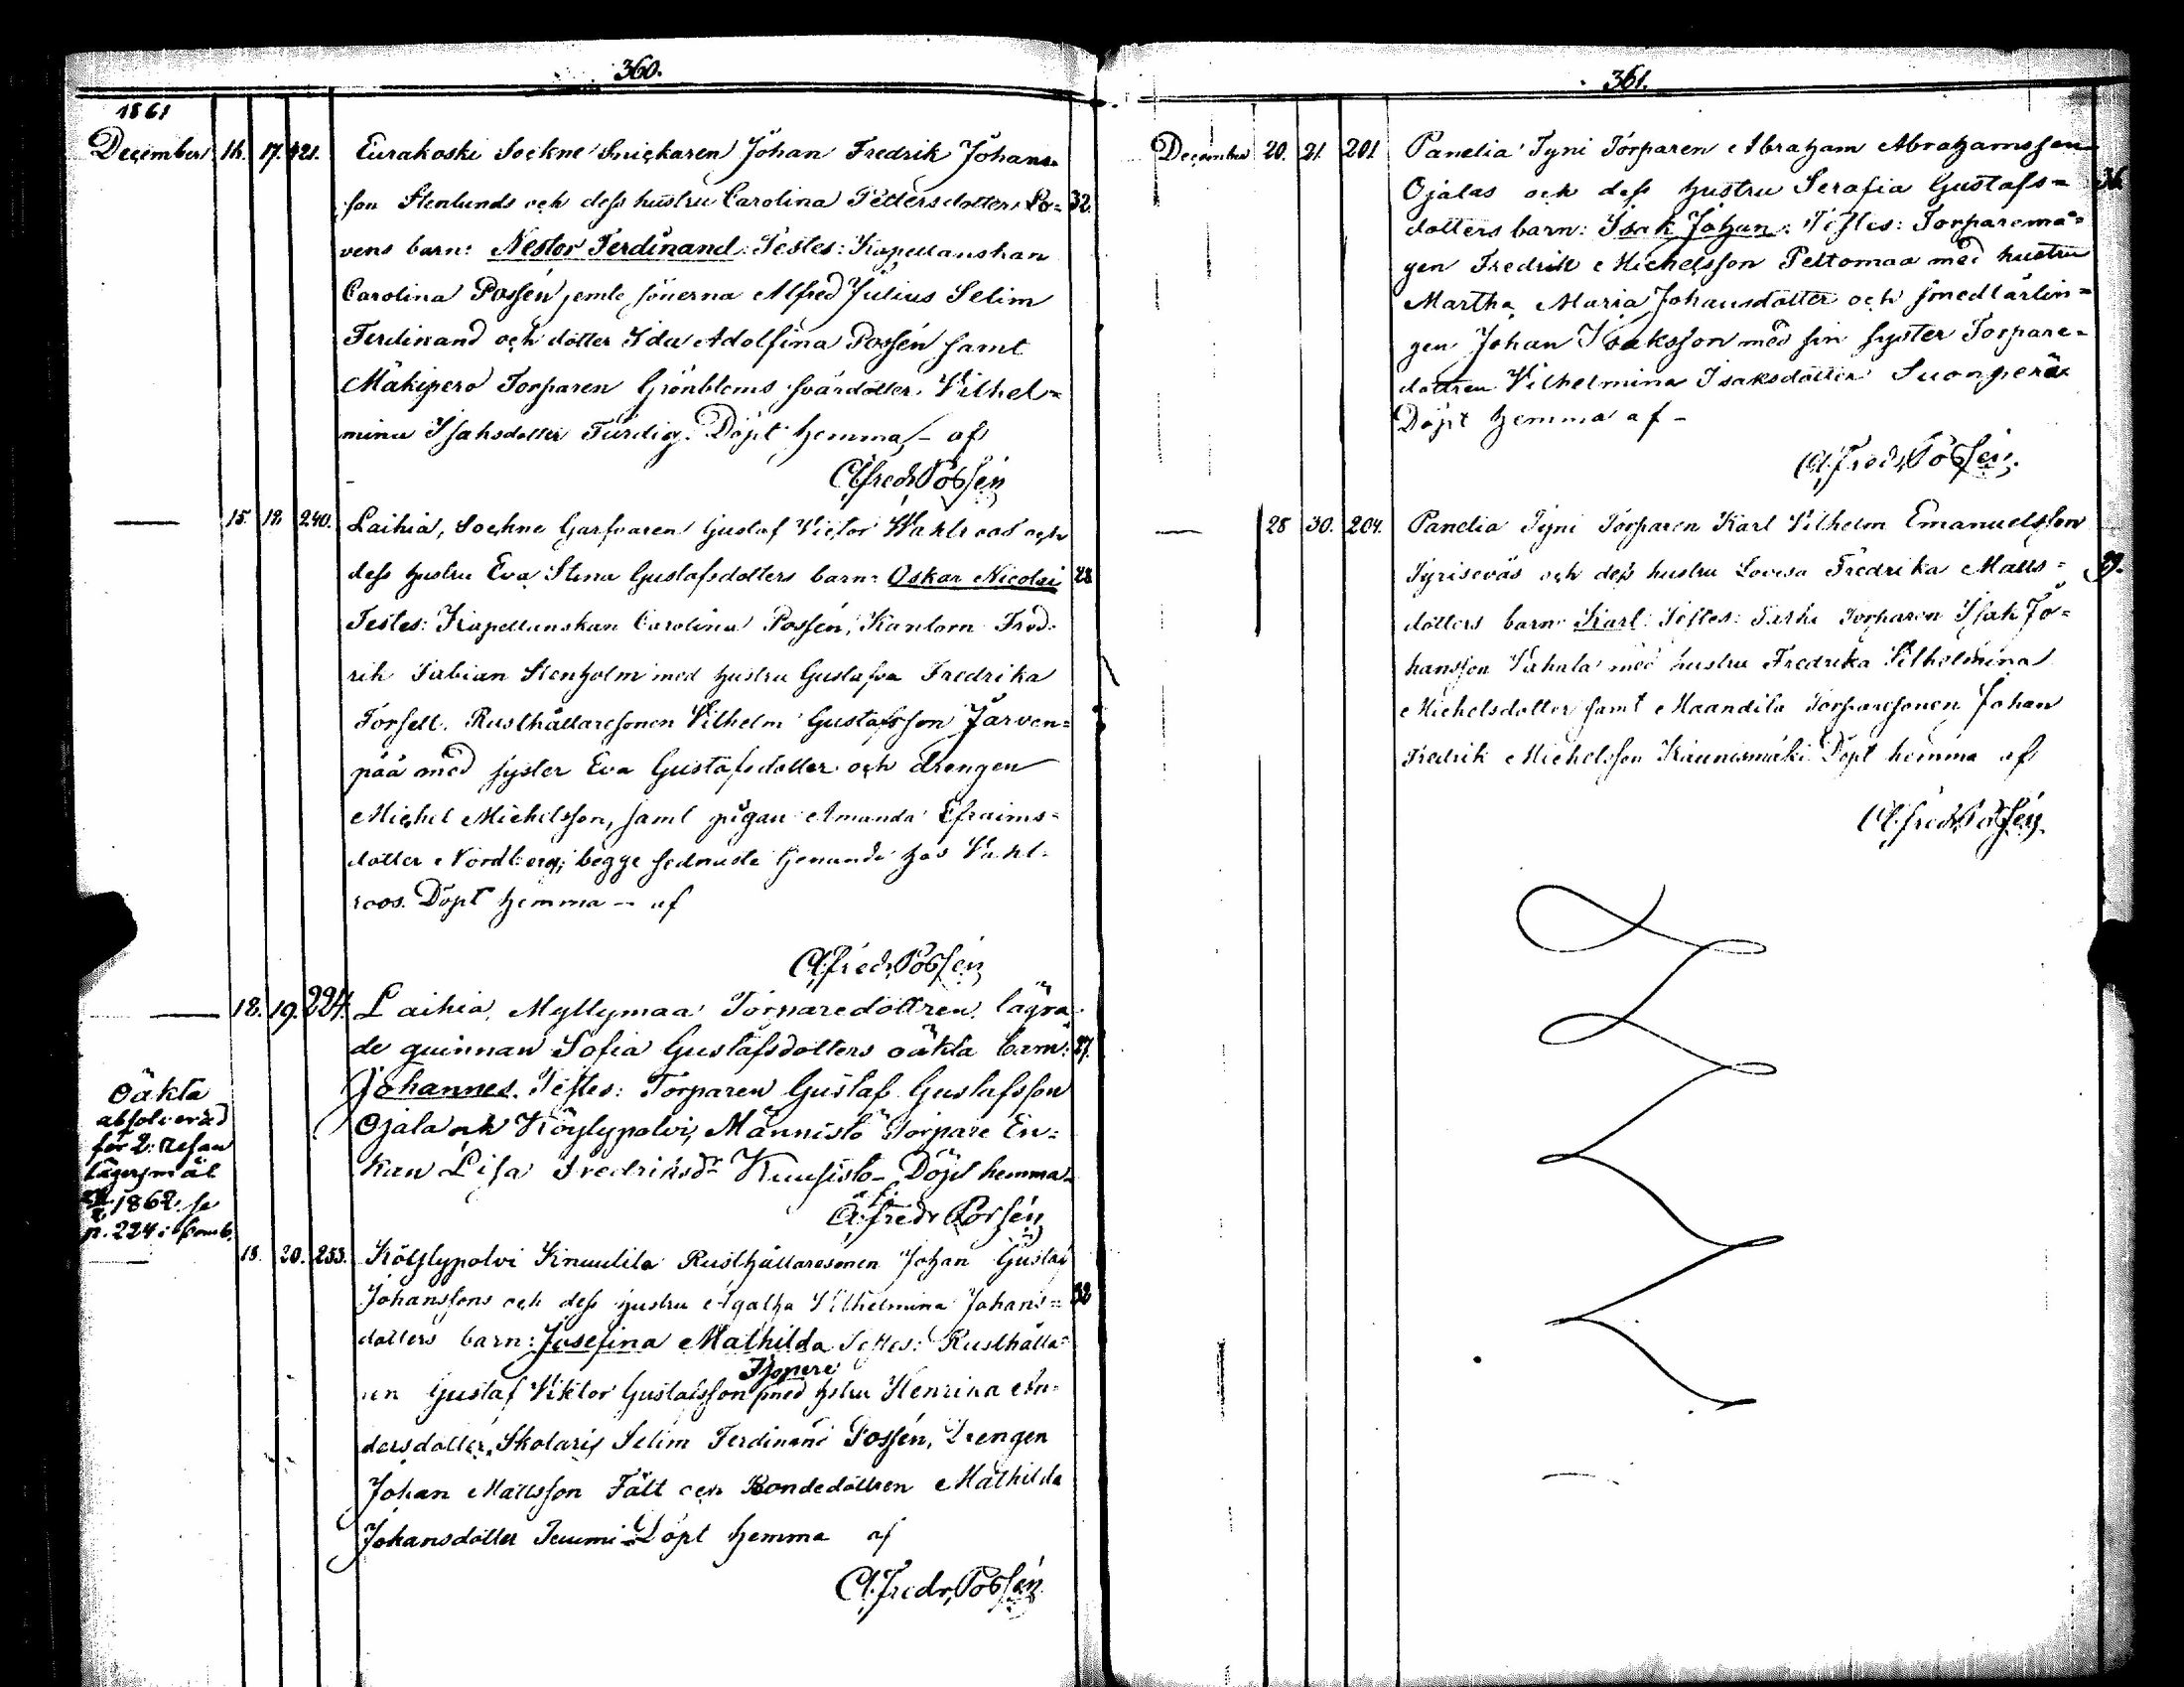 360.
1861
December 14. 17. 421. Eurakoski Sockne Snickaren Johan Fredrik Johans-
son Stenlunds och dess hustru Carolina Pettersdotter Lo= 32.
vens barn: Nestor Ferdinand. Testes: Kapellanskan
Carolina Possén jemte sönerna Alfred Julius Selim
Ferdinand och dotter Ida Adolfina Possén samt
Mäkiperö Torparen Grönbloms svärdotter Vilhel=
mina Isaksdotter Färdig. Döpt hemma, – af
A. Fredr. Possén
— 15. 19. 240. Laihia, Sockne Garfvaren Gustaf Victor Wahlroos och
dess hustru Eva Stina Gustafsdotters barn: Oskar Nicolai 28
Testes: Kapellanskan Carolina Possén, Kantorn Fred-
rik Fabian Stenholm med hustru Gustafva Fredrika
Forsell. Rusthållaresonen Vilhelm Gustafsson Järven=
pää med syster Eva Gustafsdotter och drengen
Michel Michelsson, samt pigan Amanda Efraims=
dotter Nordberg, begge sednaste hemma hos Vahl-
roos. Döpt hemma – af
A. Fredr. Possén
— 18. 19. 224. Laihia, Myllymaa Torparedottren, lägra-
de quinnan Sofia Gustafsdotters oäkta barn: 27.
Johannes. Testes: Torparen Gustaf Gustafsson
Ojala och Köylypolvi, Männistö Torpare En=
kan Lisa Fredriksdr Kuusisto – Döpt hemma
af
A. Fredr. Possén
Oäkta
absolverad
för 2: resan
lägersmål
1862. se
p. 224 i
— 18. 20. 253. Köylypolvi Knuutila Rusthållaresonen Johan Gustaf
Johanssons och dess hustru Agatha Vilhelmina Johans= 32
dotters barn: Josefina Mathilda Testes: Rusthålla=
Isopere
ren Gustaf Viktor Gustafsson med hstru Henrica An-
dersdotter, Skolaris Selim Ferdinand Possén, Drengen
Johan Mattsson Fält och Bondedottren Mathilda
Johansdotter Juumi – Döpt hemma af
A. Fredr. Possén
361.
December 20. 21. 201 Panelia Tyni Torparen Abraham Abrahamsson
Ojalas och dess hustru Serafia Gustafs= 36
dotters barn: Isak Johan. Testes: Torparemå=
gen Fredrik Michelsson Peltomaa med hustru
Martha Maria Johansdotter och smedlärlin=
gen Johan Isaksson med sin syster Torpare=
dottren Vilhelmina Isaksdotter Suonperä
Döpt hemma af –
A. Fredr. Possén.
— 28 30. 204. Panelia Tyni Torparen Karl Vilhelm Emanuelsson
Tyriseväs och dess hustru Lovisa Fredrika Matts=
dotters barn: Karl. Testes: Torparen Isak Jo=
hansson Vahala med hustru Fredrika Vilhelmina
Michelsdotter samt Maandila Torparesonen Johan
Fredrik Michelsson Kaunismäki. Döpt hemma af
A. Fredr. Possén